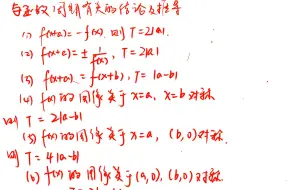 与函数周期有关的结论及推导
(1) f(x+a)=-f(x). 则 T=2|a|.
(2) f(x+a)=± 1/f(x), T=2|a|
(3) f(x+a)=f(x+b), T=|a-b|
(4) f(x)的图像关于x=a, x=b对称
则 T=2|a-b|
(5) f(x)的图像关于x=a, (b,0)对称.
则 T=4|a-b|
(6) f(x)的图像关于(a,0), (b,0)对称